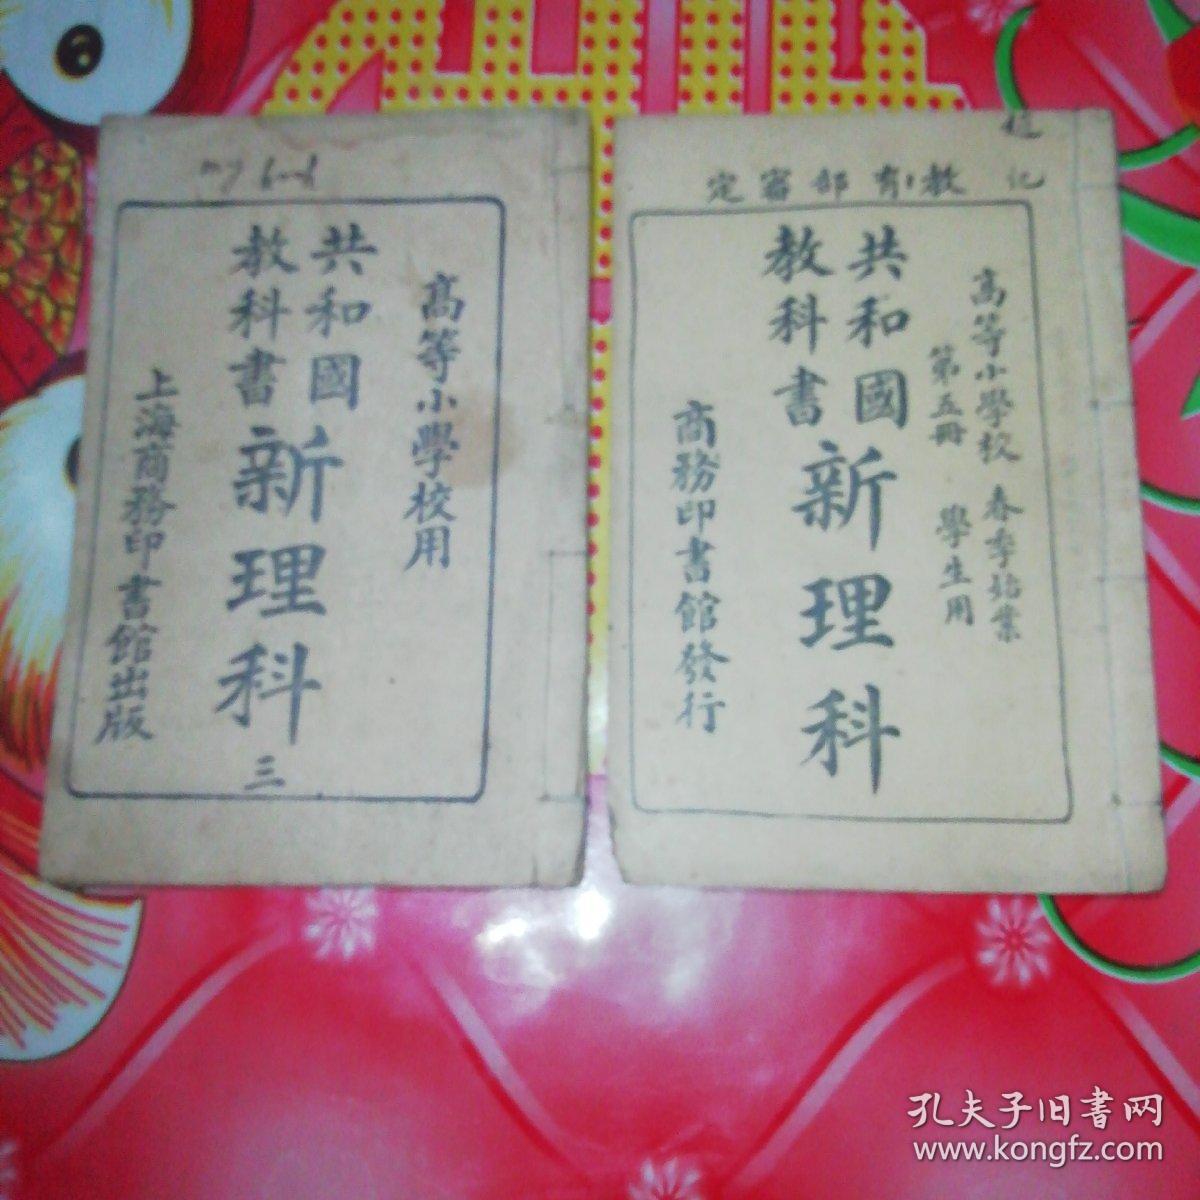 高等小學校用
共和國
教科書
新理科 三
上海商務印書館出版
教育部審定
高等小學校 春季始業
第五冊 學生用
共和國
教科書
新理科
商務印書館發行
孔夫子旧书网
www.kongfz.com